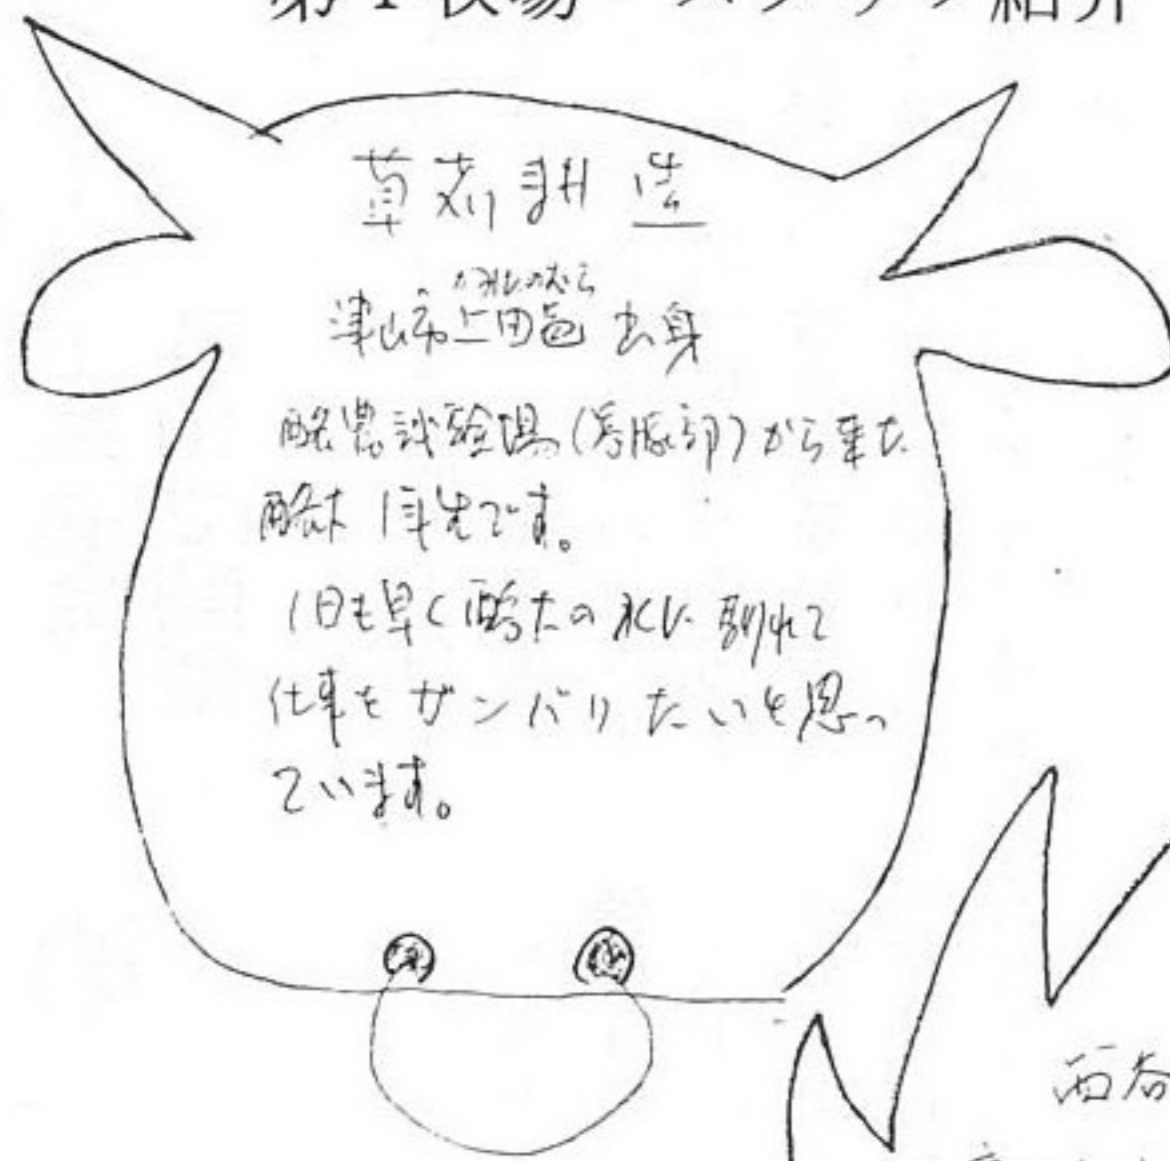 第1牧場 スタッフ紹介
草苅耕造
かみたのむら
津山市上田邑出身
酪農試験場(養豚部)から来た
酪大1年生です。
1日も早く酪大の水に馴れて
仕事をガンバリたいと思っ
ています。
西谷